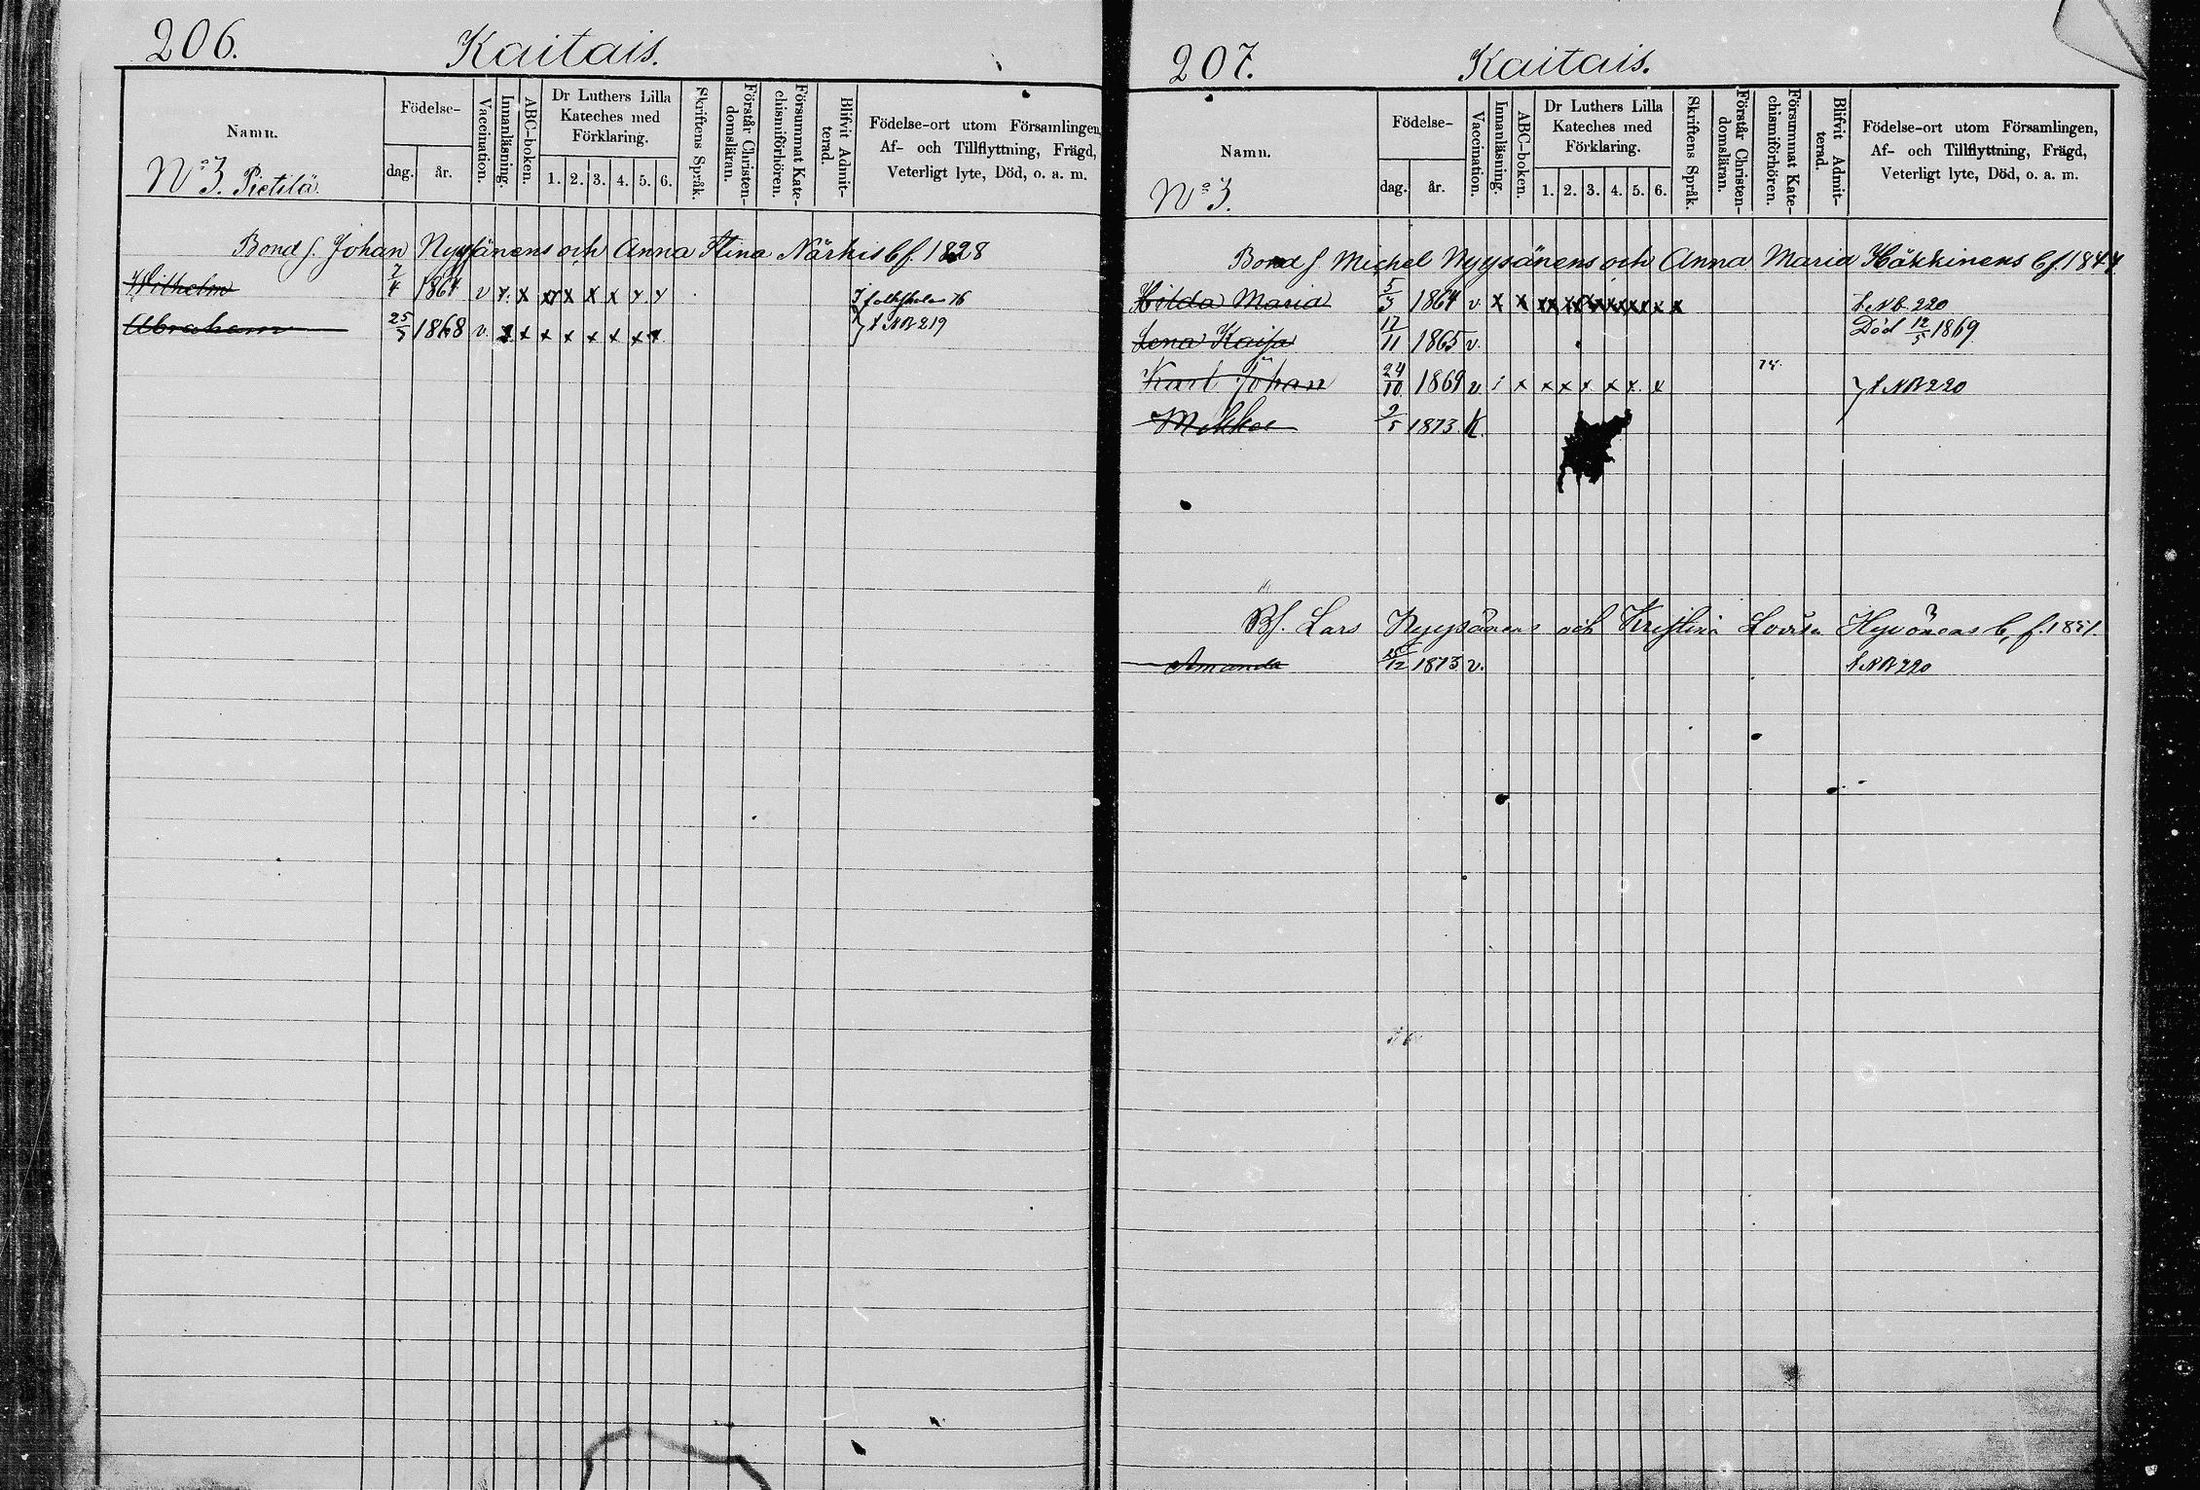 206. Kaitais.
Namn.
Födelse-
dag. år.
Vaccination.
Innanläsning.
ABC-boken.
Dr Luthers Lilla
Kateches med
Förklaring.
1. 2. 3. 4. 5. 6.
Skriftens Språk.
Förstår Christen-
domsläran.
Försummat Kate-
chismiförhören.
Blifvit Admit-
terad.
Födelse-ort utom Församlingen,
Af- och Tillflyttning, Frägd,
Veterligt lyte, Död, o. a. m.
No 3. Pietilä.
Bond s. Johan Nyysänens och Anna Stina Närhis b f. 1828
Wilhelm 7/4 1864 v x. x x x x x x x folkskolan 76
Abraham 25/3 1868 v. x x x x x x x x NB 219
207. Kaitais.
Namn.
Födelse-
dag. år.
Vaccination.
Innanläsning.
ABC-boken.
Dr Luthers Lilla
Kateches med
Förklaring.
1. 2. 3. 4. 5. 6.
Skriftens Språk.
Förstår Christen-
domsläran.
Försummat Kate-
chismiförhören.
Blifvit Admit-
terad.
Födelse-ort utom Församlingen,
Af- och Tillflyttning, Frägd,
Veterligt lyte, Död, o. a. m.
No 3.
Bond s Michel Nyysänens och Anna Maria Häkkinens b f. 1844
Hilda Maria 5/3 1864 v. x x xx xx xx xx xx x x x NB. 220
Lena Kaisa 17/11 1865 v. Död 12/5 1869
Karl Johan 24/10 1869 v. x x x x x x x 78. NB 220
Mikko 2/5 1873. K.
Bs. Lars Nyysänens och Kristina Lovisa Hyvönens b, f. 1851.
Amanda 12 1873 v. NB 220